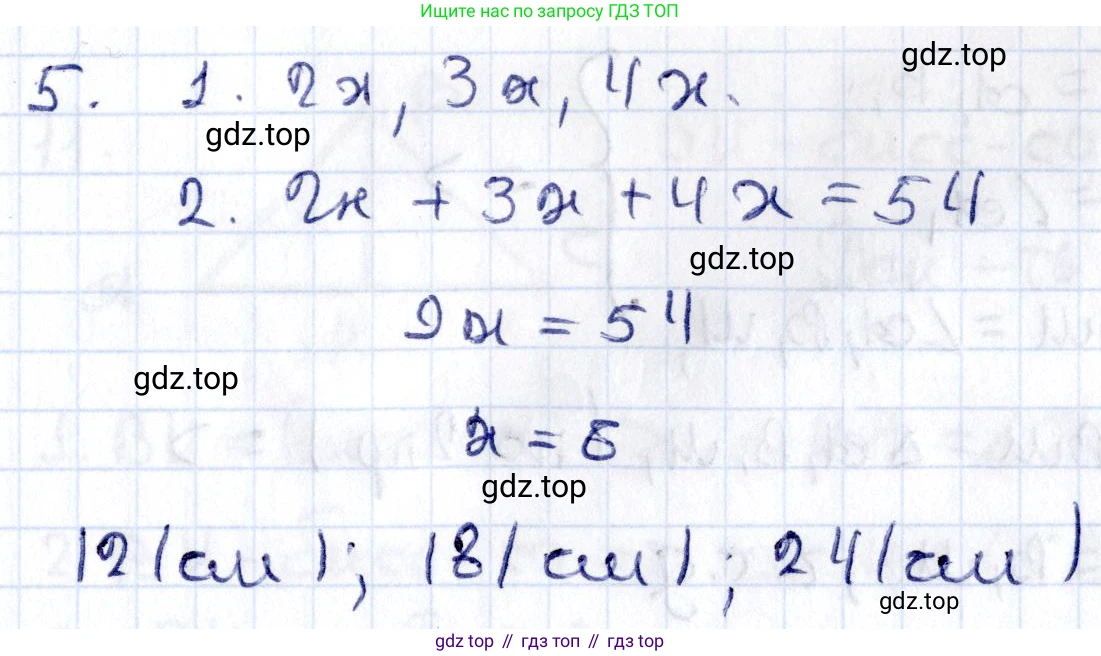 Ищите нас по запросу ГДЗ ТОП
gdz.top
5. 1. 2x, 3x, 4x.
gdz.top
2. 2x + 3x + 4x = 54
gdz.top
9x = 54
gdz.top
x = 6
gdz.top
12 (см); 18 (см); 24 (см)
gdz.top
gdz.top // гдз топ // гдз top